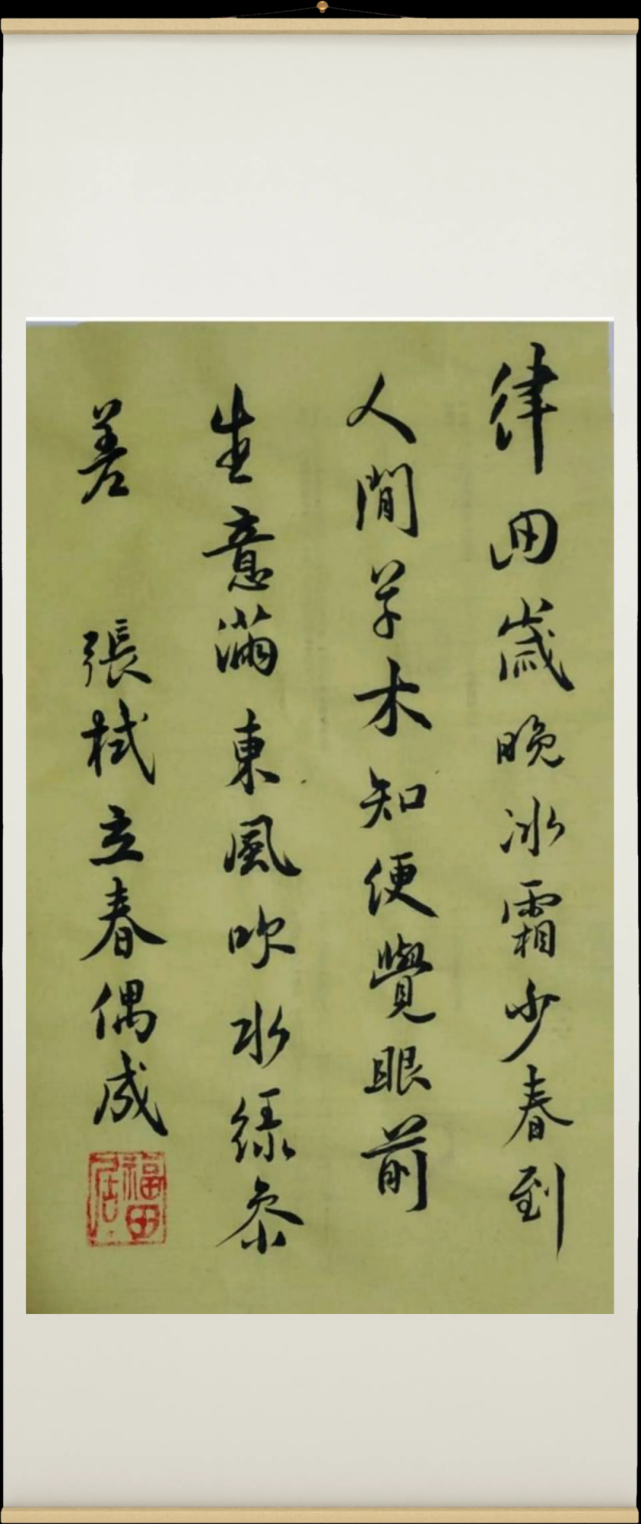 律回歲晚冰霜少春到
人間草木知便覺眼前
生意滿東風吹水綠參
差 張栻立春偶成
福田居